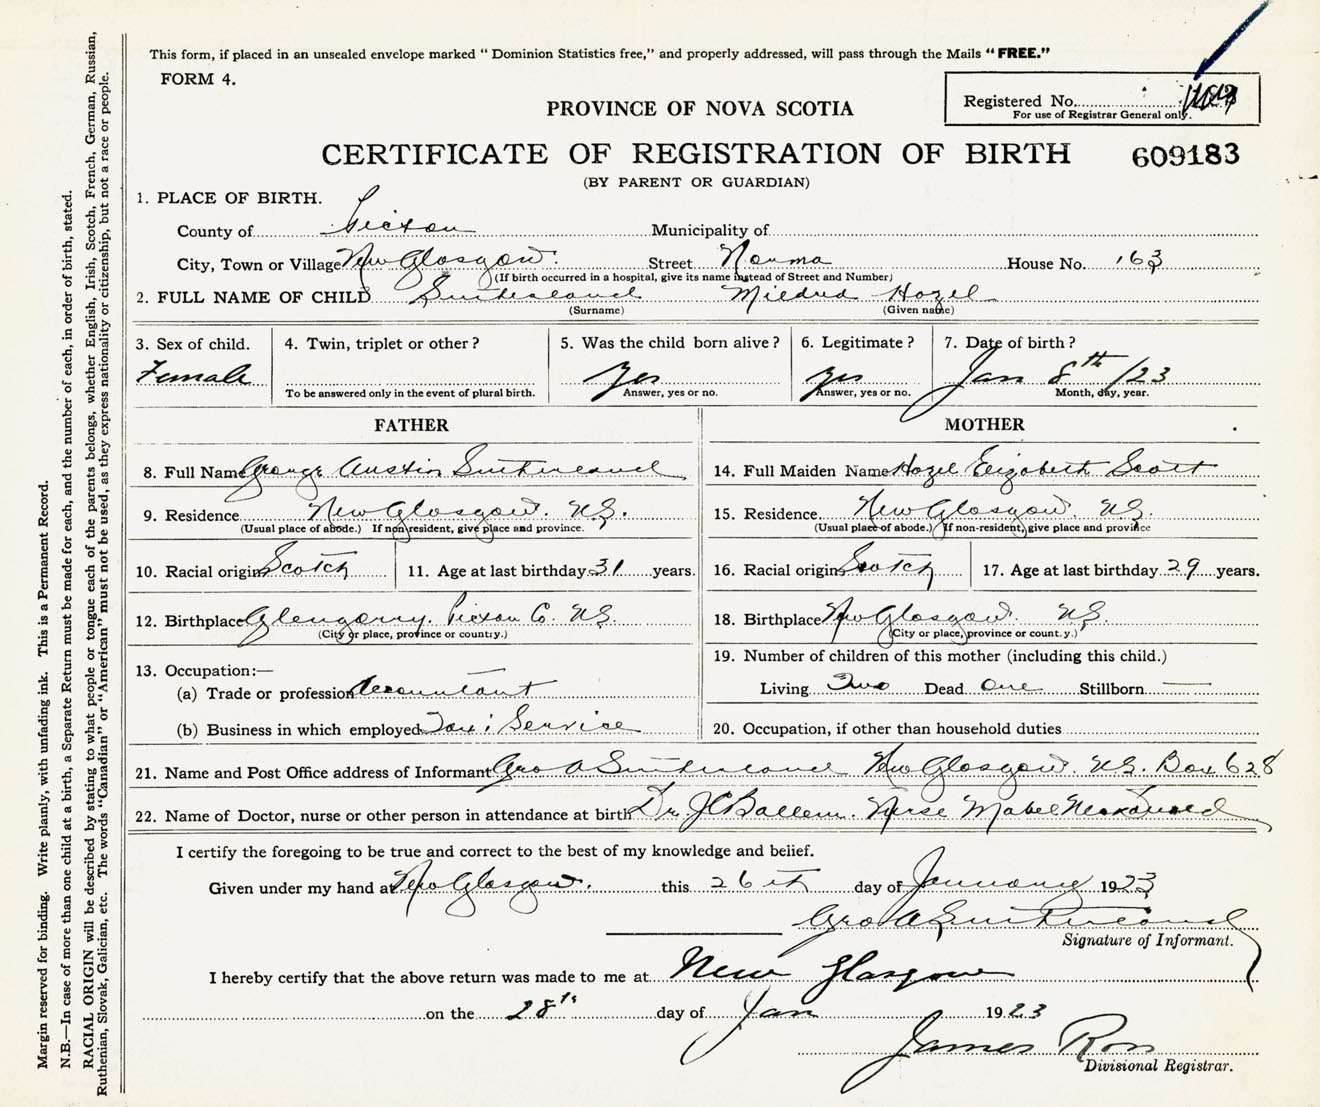 This form, if placed in an unsealed envelope marked " Dominion Statistics free," and properly addressed, will pass through the Mails "FREE."
FORM 4.
Registered No.
For use of Registrar General only.
PROVINCE OF NOVA SCOTIA
CERTIFICATE OF REGISTRATION OF BIRTH 609183
(BY PARENT OR GUARDIAN)
1. PLACE OF BIRTH.
County of Pictou Municipality of
City, Town or Village New Glasgow. Street Norma House No. 163
(If birth occurred in a hospital, give its name instead of Street and Number)
2. FULL NAME OF CHILD Sutherland Mildred Hazel
(Surname) (Given name)
3. Sex of child. 4. Twin, triplet or other? 5. Was the child born alive? 6. Legitimate? 7. Date of birth?
Female Yes Yes Jan 8th /23
To be answered only in the event of plural birth. Answer, yes or no. Answer, yes or no. Month, day, year.
FATHER MOTHER
8. Full Name George Austin Sutherland 14. Full Maiden Name Hazel Elizabeth Scott
9. Residence New Glasgow. N.S. 15. Residence New Glasgow. N.S.
(Usual place of abode.) If nonresident, give place and province. (Usual place of abode.) If non-resident, give place and province
10. Racial origin Scotch 11. Age at last birthday 31 years. 16. Racial origin Scotch 17. Age at last birthday 29 years.
12. Birthplace Glengarry. Pictou Co. N.S. 18. Birthplace New Glasgow. N.S.
(City or place, province or county.) (City or place, province or county.)
13. Occupation:— 19. Number of children of this mother (including this child.)
(a) Trade or profession Accountant Living Two Dead One Stillborn —
(b) Business in which employed Taxi Service 20. Occupation, if other than household duties
21. Name and Post Office address of Informant Geo A Sutherland New Glasgow. N.S. Box 628
22. Name of Doctor, nurse or other person in attendance at birth Dr. J C Ballem. Nurse Mabel
I certify the foregoing to be true and correct to the best of my knowledge and belief.
Given under my hand at New Glasgow. this 26th day of January 1923
Geo A Sutherland
Signature of Informant.
I hereby certify that the above return was made to me at New Glasgow
on the 28th day of Jan 1923
James Ross
Divisional Registrar.
Margin reserved for binding. Write plainly, with unfading ink. This is a Permanent Record.
N.B.—In case of more than one child at a birth, a Separate Return must be made for each, and the number of each, in order of birth, stated.
RACIAL ORIGIN will be described by stating to what people or tongue each of the parents belongs, whether English, Irish, Scotch, French, German, Russian,
Ruthenian, Slovak, Galician, etc. The words "Canadian" or "American" must not be used, as they express nationality or citizenship, but not a race or people.